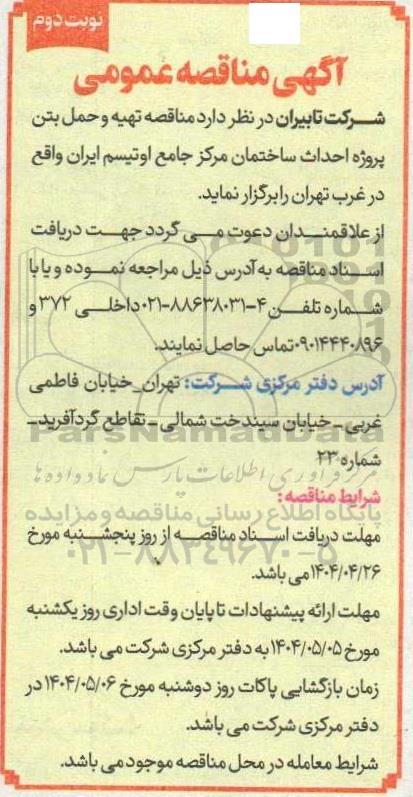 نوبت دوم
آگهی مناقصه عمومی
شرکت تابیران در نظر دارد مناقصه تهیه و حمل بتن
پروژه احداث ساختمان مرکز جامع اوتیسم ایران واقع
در غرب تهران را برگزار نماید.
از علاقمندان دعوت می گردد جهت دریافت
اسناد مناقصه به آدرس ذیل مراجعه نموده و یا با
شماره تلفن ۴-۸۸۶۳۸۰۳۱-۰۲۱ داخلی ۳۷۲ و
۰۹۰۱۴۴۴۰۸۹۶ تماس حاصل نمایند.
آدرس دفتر مرکزی شرکت: تهران_خیابان فاطمی
غربی_خیابان سیندخت شمالی_تقاطع گردآفرید_
شماره ۲۳
شرایط مناقصه:
مهلت دریافت اسناد مناقصه از روز پنجشنبه مورخ
۱۴۰۴/۰۴/۲۶ می باشد.
مهلت ارائه پیشنهادات تا پایان وقت اداری روز یکشنبه
مورخ ۱۴۰۴/۰۵/۰۵ به دفتر مرکزی شرکت می باشد.
زمان بازگشایی پاکات روز دوشنبه مورخ ۱۴۰۴/۰۵/۰۶ در
دفتر مرکزی شرکت می باشد.
شرایط معامله در محل مناقصه موجود می باشد.
ParsNamadData
مرکز فرآوری اطلاعات پارس نماد داده ها
پایگاه اطلاع رسانی مناقصه و مزایده
۰۲۱-۸۸۳۴۹۶۷۰-۵